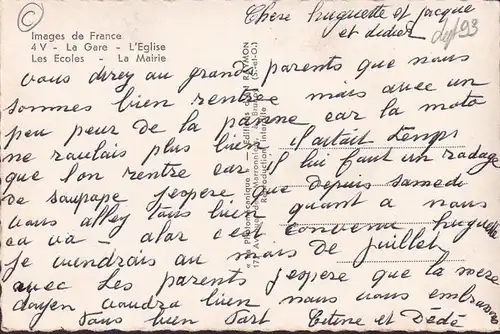 Chere huguette et jacque
et didier
Dept 93
Images de France
4 V - La Gare - L'Eglise
Les Ecoles - La Mairie
vous direy au grand parents que nous
sommes bien rentre mais avec un
peu peur de la panne car la moto
ne roulais plus bien il aitait temps
que l'on rentre car il lui faut un rodage
de soupape j'espere que depuis samedi
vous alley tous bien quant a nous
ca va - alor c'est convenu huguette
je viendrais au mois de juillet
avec les parents j'espere que la mere
doyen voudra bien nous vous embrasse
tous bien fort Titine et Dédé
RAYMON